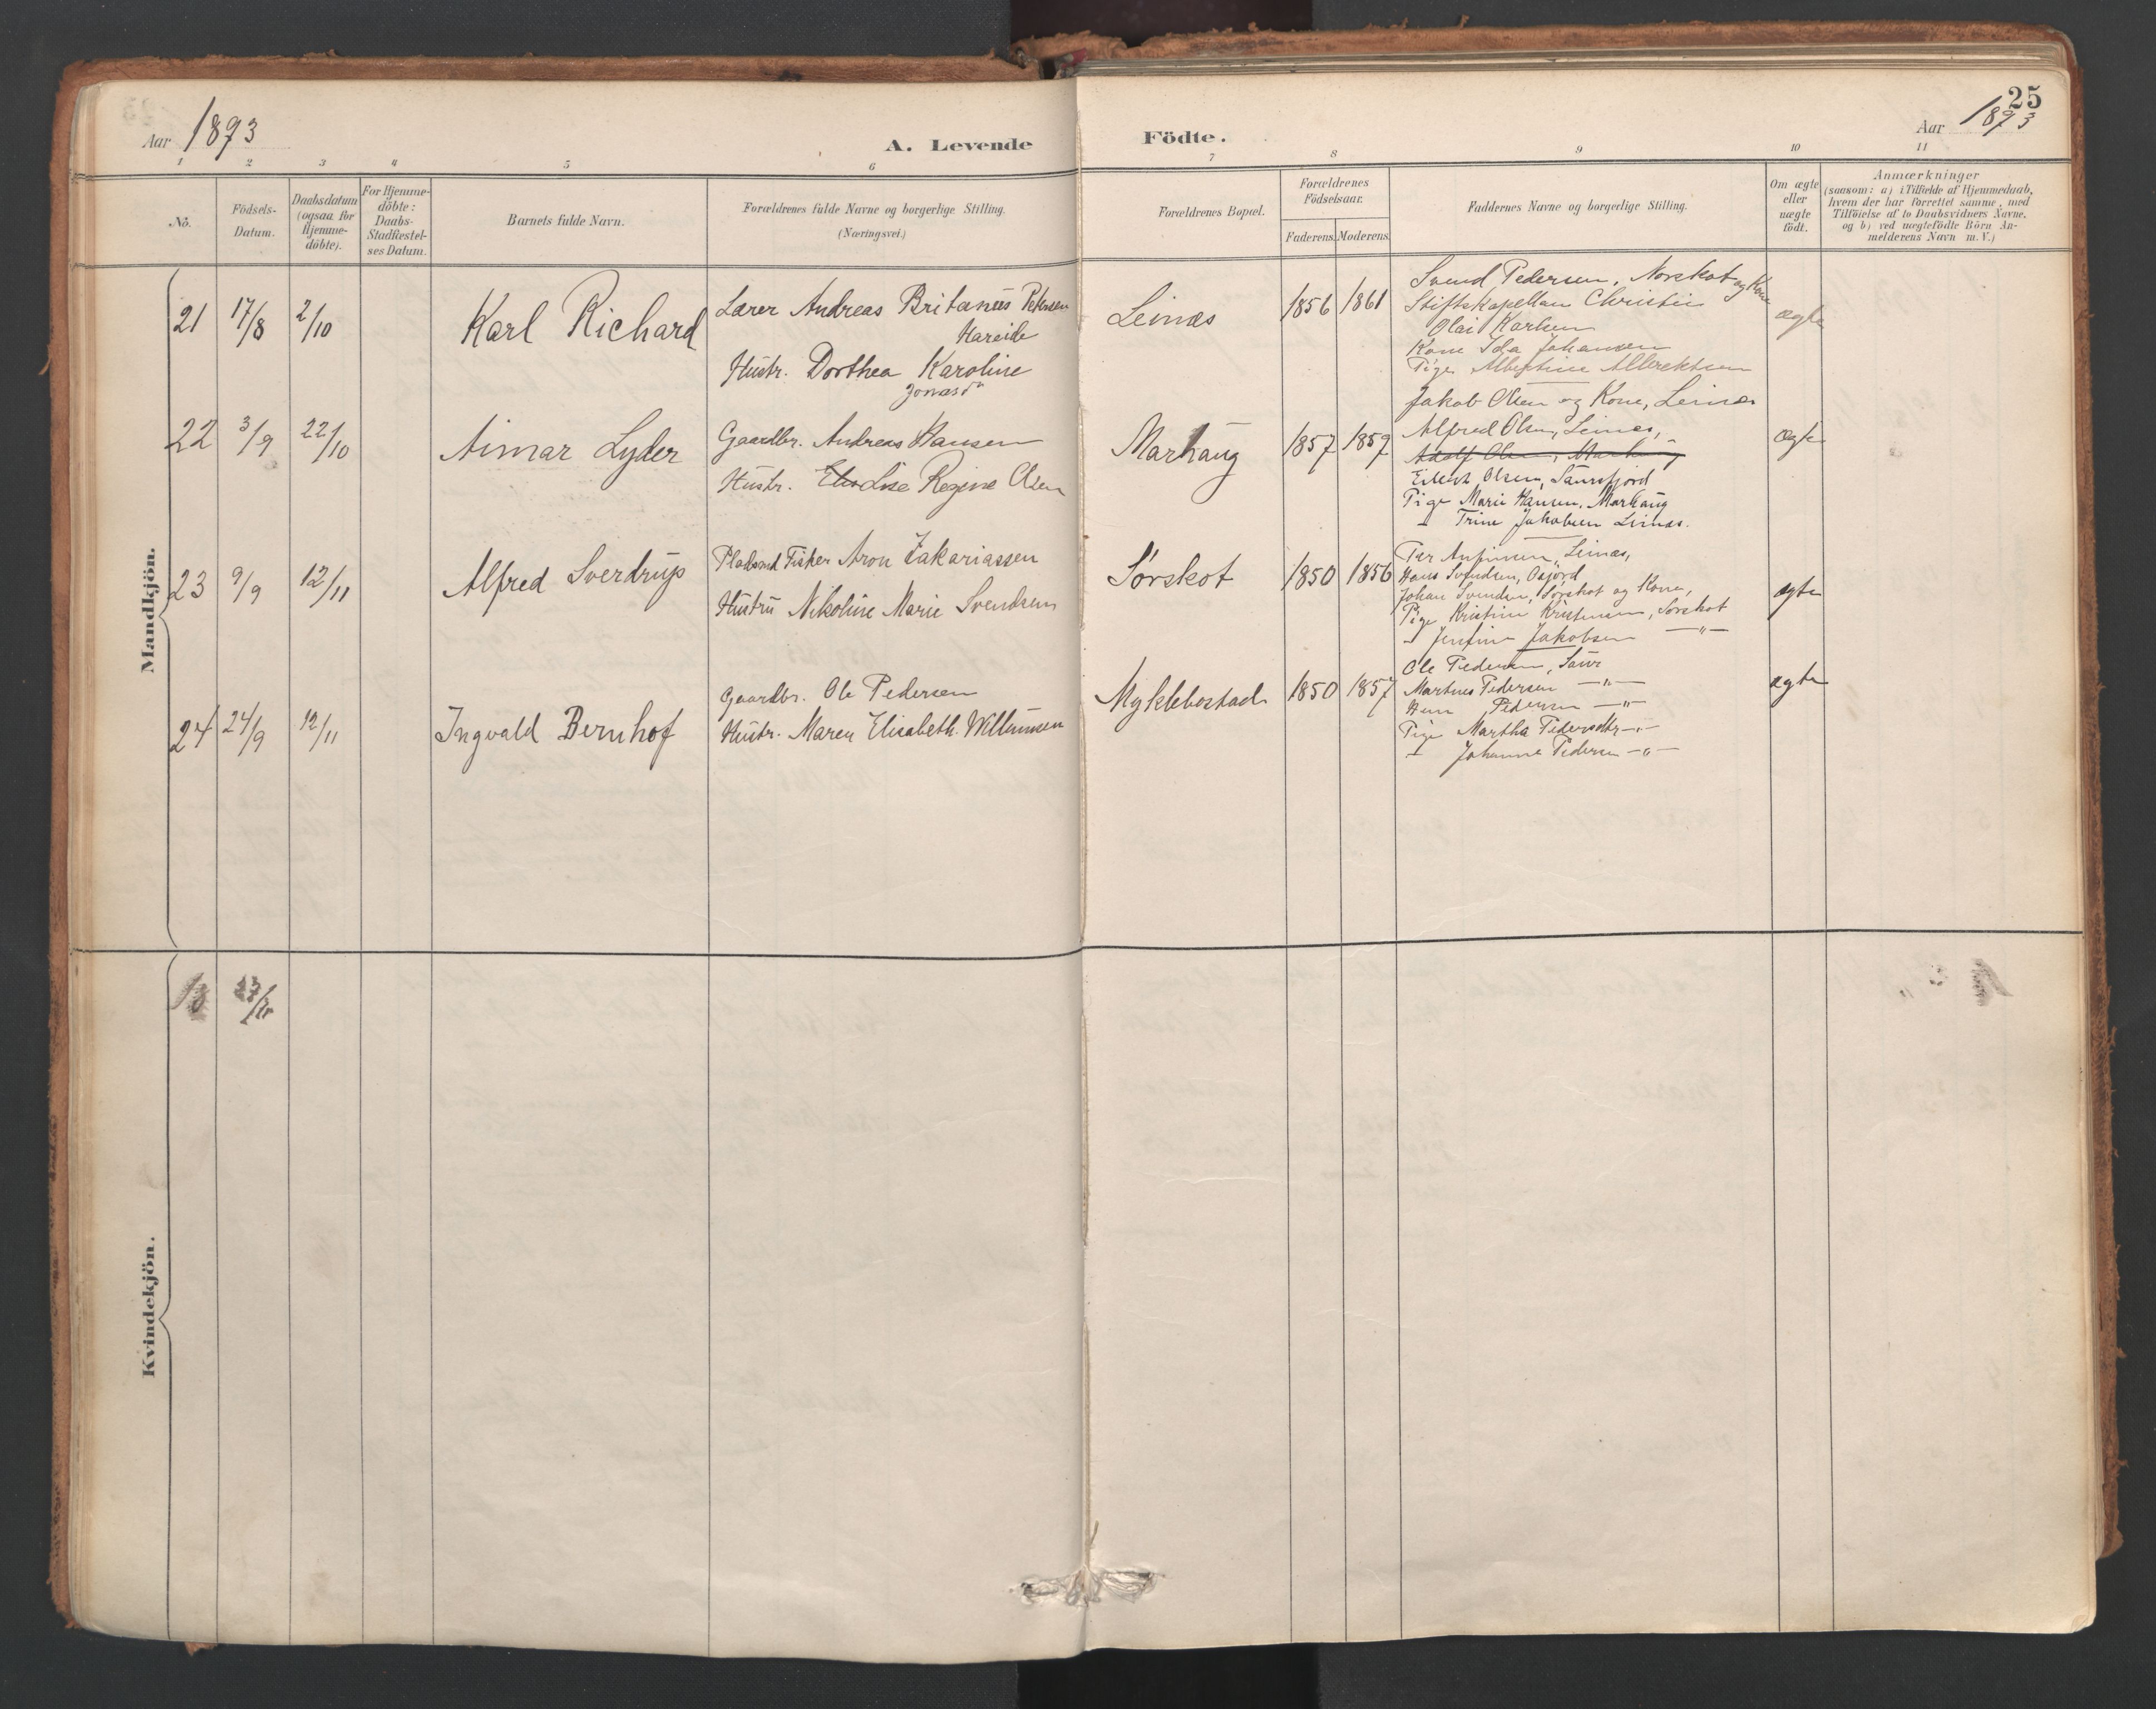 25
Aar 1893
A. Levende
Födte.
Aar 1893
1 2 3 4 5 6 7 8 9 10 11
No.
Födsels-
Datum.
Daabsdatum
(ogsaa for
Hjemme-
döbte).
For Hjemme-
döbte:
Daabs-
Stadfæstel-
ses Datum.
Barnets fulde Navn.
Forældrenes fulde Navne og borgerlige Stilling.
(Næringsvei.)
Forældrenes Bopæl.
Forældrenes
Födselsaar.
Faderens. Moderens.
Faddernes Navne og borgerlige Stilling.
Om ægte
eller
uægte
födt.
Anmærkninger
(saasom: a) i Tilfælde af Hjemmedaab,
hvem der har forrettet samme, med
Tilföielse af to Daabsvidners Navne.
og b) ved uægtefödte Börn An-
melderens Navn m. V.)
Mandkjön.
21 17/8 2/10
Karl Richard
Lærer Andreas Britanus Petersen
Hareide
Hustr. Dorthea Karoline
Jonasdr
Leinæs
1856 1861
Svend Pedersen, Norskot og Kone
Stiftskapellan Christie
Olai Karlsen
Kone Ida Johansen
Pige Albertine Albrektsen
Jakob Olsen og Kone, Leinæs
ægte
22 3/9 22/10
Aimar Lyder
Gaardbr. Andreas Hansen
Hustr. Lise Regine Olsen
Marhaug
1857 1859
Alfred Olsen, Leines,
Adolf Olsen, Marhaug
Eilert Olsen, Saursfjord
Pige Marie Hansen, Marhaug
— Trine Jakobsen Leinæs.
ægte
23 9/9 12/11
Alfred Sverdrup
Pladsmd Fisker Aron Zakariassen
Hustru Nikoline Marie Svendsen
Sørskot
1850 1856
Per Anfinsen, Leines,
Hans Svendsen,
Johan Svendsen, Sørskot og Kone,
Pige Kristine Kristensen, Sørskot
— Jensine Jakobsen —"—
ægte
24 24/9 12/11
Ingvald Bernhof
Gaardbr. Ole Pedersen
Hustr. Maren Elisabeth Willumsen
Myklebostad
1850 1857
Ole Pedersen, Saur
Martines Pedersen —"—
Pedersen —"—
Pige Martha Pedersdtr —"—
— Johanna Pedersen —"—
ægte
Kvindekjön.